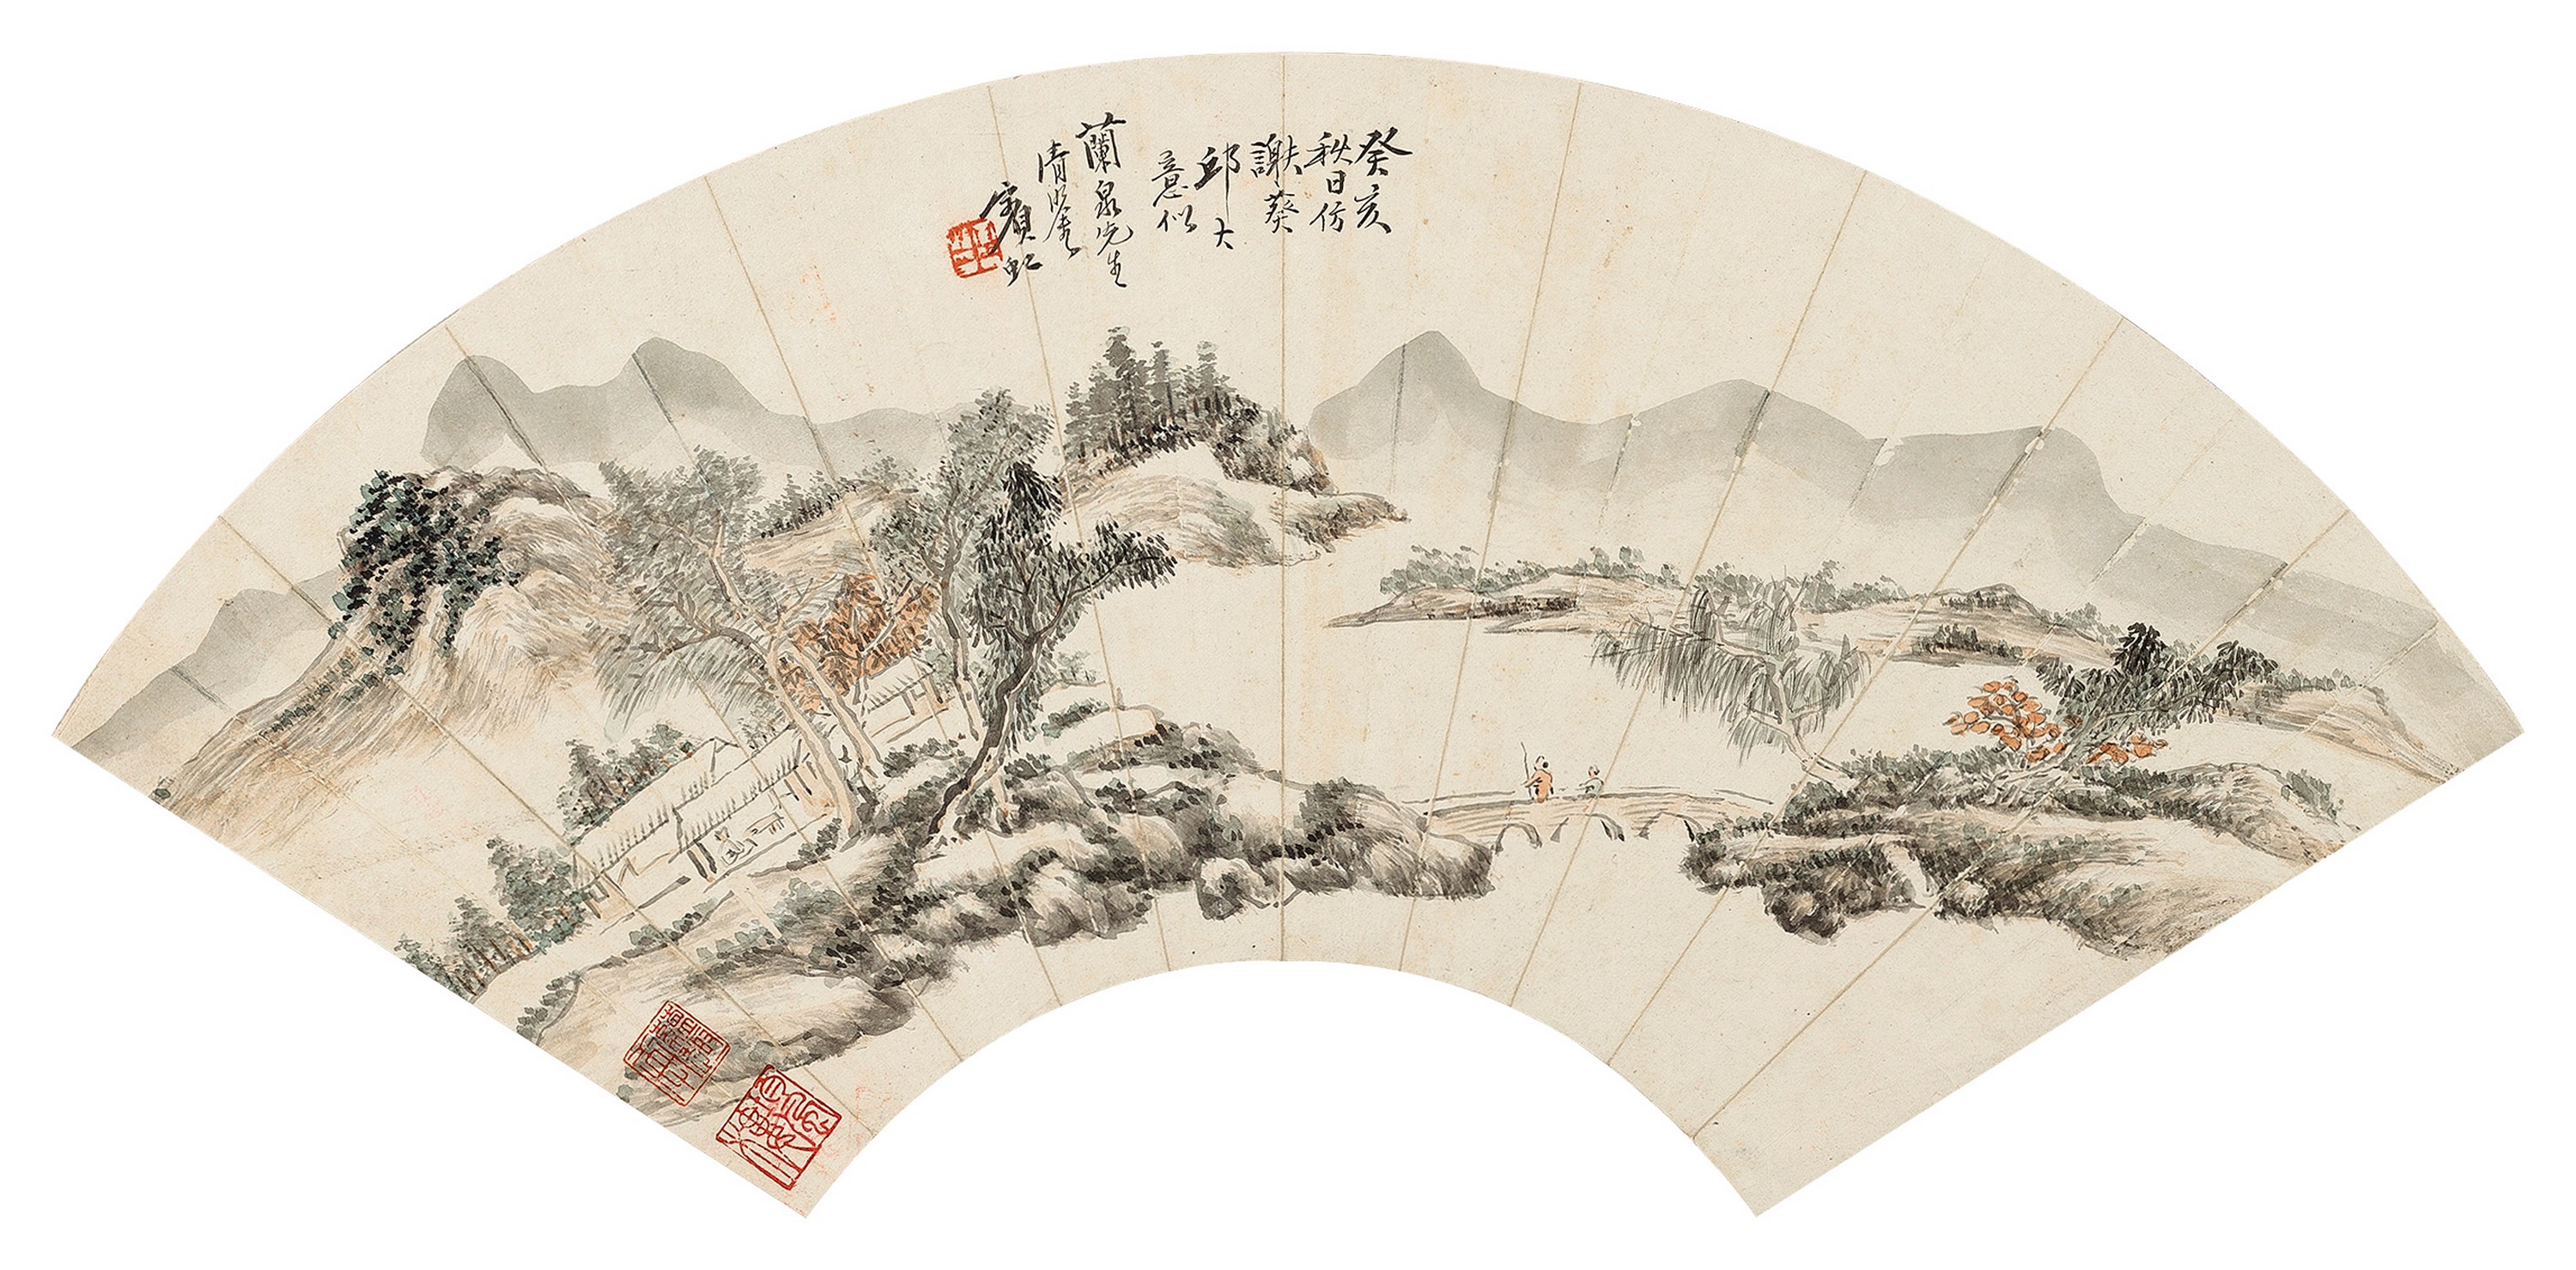 癸亥
秋日仿
謝葵
邱大
意似
蘭泉先生
清鑒
賓虹